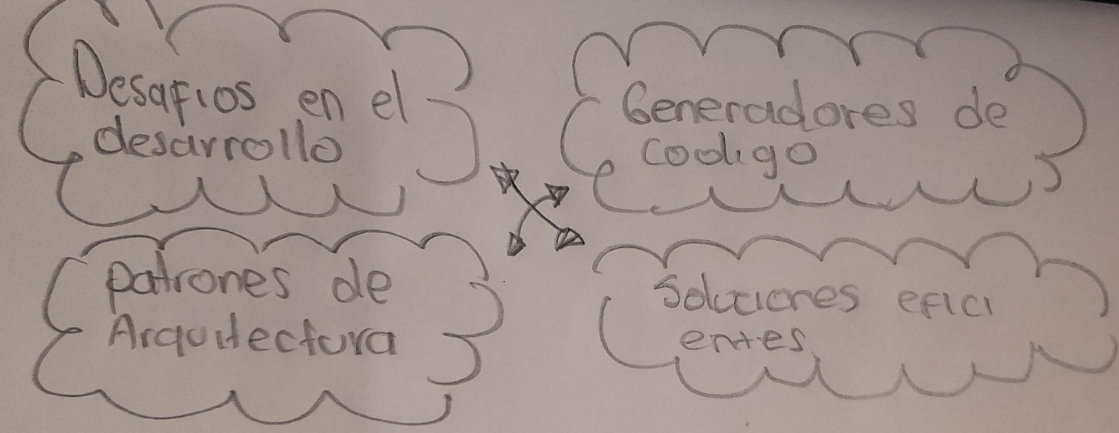 Desafios en el
desarrollo
Generadores de
codigo
patrones de
Arquitectura
Soluciones efici
entes